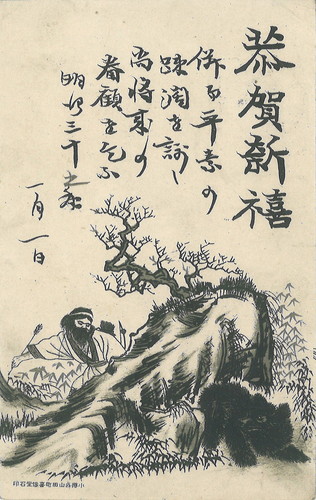 恭賀新禧
併而平素の
疎濶を謝し
尚将来の
眷顧を乞ふ
明治三十
一月一日